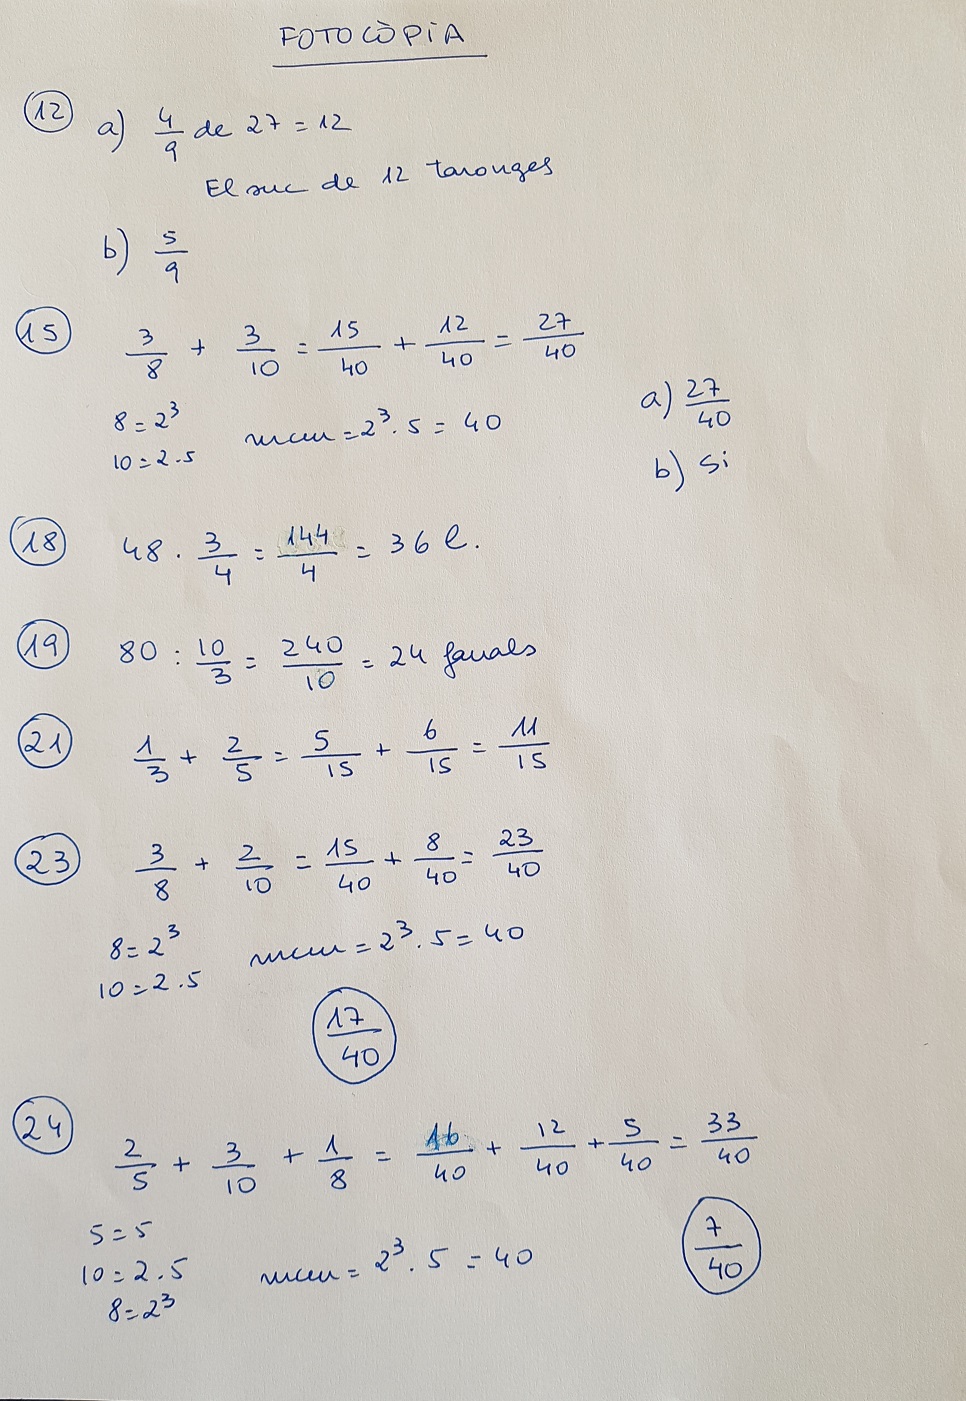 FOTOCÒPIA
12 a) 4/9 de 27 = 12
El suc de 12 taronges
b) 5/9
15 3/8 + 3/10 = 15/40 + 12/40 = 27/40
8 = 2³
10 = 2·5
mcm = 2³·5 = 40
a) 27/40
b) Si
18 48 · 3/4 = 144/4 = 36 l.
19 80 : 10/3 = 240/10 = 24 fanals
21 1/3 + 2/5 = 5/15 + 6/15 = 11/15
23 3/8 + 2/10 = 15/40 + 8/40 = 23/40
8 = 2³
10 = 2·5
mcm = 2³·5 = 40
17/40
24 2/5 + 3/10 + 1/8 = 16/40 + 12/40 + 5/40 = 33/40
5 = 5
10 = 2·5
8 = 2³
mcm = 2³·5 = 40
7/40